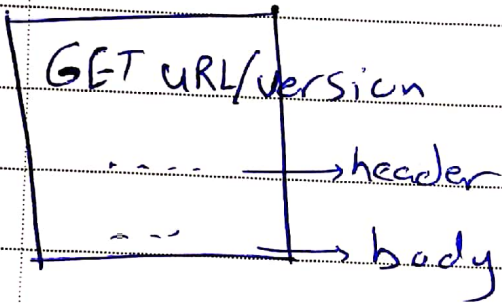 GET URL/version
.... → header
... → body